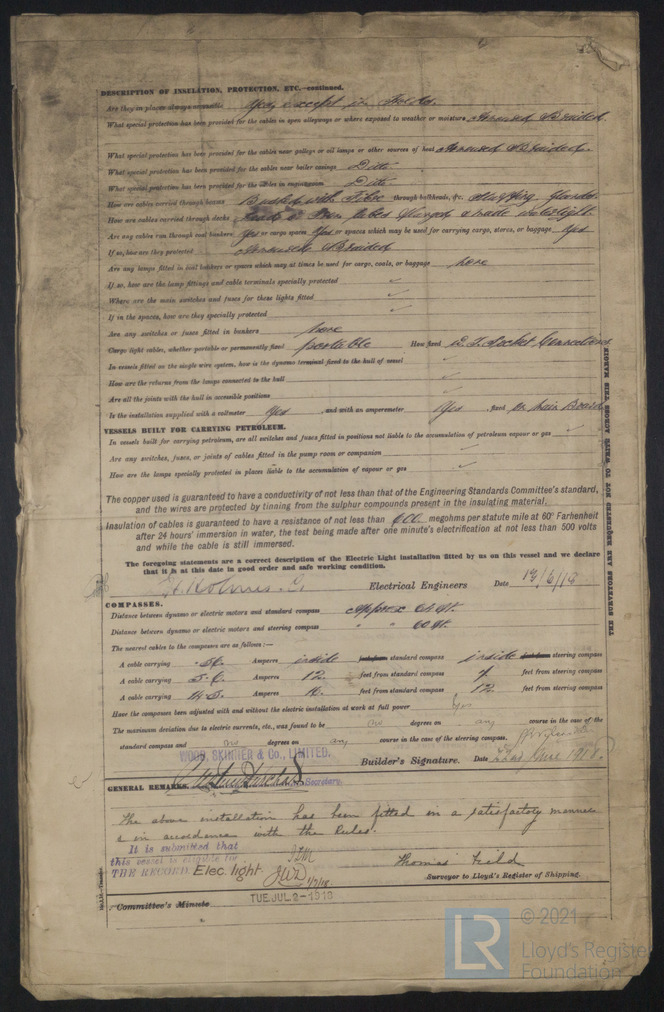 DESCRIPTION OF INSULATION, PROTECTION, ETC.—continued.
Are they in places always accessible Yes, except in
What special protection has been provided for the cables in open alleyways or where exposed to weather or moisture Armoured & Braided
What special protection has been provided for the cables near galleys or oil lamps or other sources of heat Armoured & Braided.
What special protection has been provided for the cables near boiler casings Ditto
What special protection has been provided for the cables in engineroom Ditto
How are cables carried through beams Bushed with Fibre through bulkheads, &c. Stuffing Glands
How are cables carried through decks Iron tubes flanged & made watertight.
Are any cables run through coal bunkers Yes or cargo spaces Yes or spaces which may be used for carrying cargo, stores, or baggage Yes
If so, how are they protected Armoured & Braided
Are any lamps fitted in coal bunkers or spaces which may at times be used for cargo, coals, or baggage none
If so, how are the lamp fittings and cable terminals specially protected ✓
Where are the main switches and fuses for these lights fitted ✓
If in the spaces, how are they specially protected ✓
Are any switches or fuses fitted in bunkers none
Cargo light cables, whether portable or permanently fixed portable How fixed Socket Connections
In vessels fitted on the single wire system, how is the dynamo terminal fixed to the hull of vessel ✓
How are the returns from the lamps connected to the hull ✓
Are all the joints with the hull in accessible positions ✓
Is the installation supplied with a voltmeter Yes and with an amperemeter Yes , fixed On Main Board
VESSELS BUILT FOR CARRYING PETROLEUM.
In vessels built for carrying petroleum, are all switches and fuses fitted in positions not liable to the accumulation of petroleum vapour or gas ✓
Are any switches, fuses, or joints of cables fitted in the pump room or companion ✓
How are the lamps specially protected in places liable to the accumulation of vapour or gas ✓
THE SURVEYORS ARE REQUESTED NOT TO WRITE ACROSS THIS MARGIN
The copper used is guaranteed to have a conductivity of not less than that of the Engineering Standards Committee's standard,
and the wires are protected by tinning from the sulphur compounds present in the insulating material.
Insulation of cables is guaranteed to have a resistance of not less than 600 megohms per statute mile at 60° Farhenheit
after 24 hours' immersion in water, the test being made after one minute's electrification at not less than 500 volts
and while the cable is still immersed.
The foregoing statements are a correct description of the Electric Light installation fitted by us on this vessel and we declare
that it is at this date in good order and safe working condition.
Holmes & Co Electrical Engineers Date /6/18
COMPASSES.
Distance between dynamo or electric motors and standard compass approx 64 ft.
Distance between dynamo or electric motors and steering compass " " 60 ft.
The nearest cables to the compasses are as follows:—
A cable carrying Amperes inside feet from standard compass inside feet from steering compass
A cable carrying Amperes 12 feet from standard compass 7 feet from steering compass
A cable carrying Amperes feet from standard compass 12 feet from steering compass
Have the compasses been adjusted with and without the electric installation at work at full power Yes
The maximum deviation due to electric currents, etc., was found to be no degrees on any course in the case of the
standard compass and no degrees on any course in the case of the steering compass.
WOOD, SKINNER & Co., LIMITED.
Secretary.
Builder's Signature. Date June 1918.
GENERAL REMARKS.
The above installation has been fitted in a satisfactory manner
& in accordance with the Rules.
It is submitted that
this vessel is eligible for
THE RECORD Elec. light.
JWD 1/7/18
Thomas Field
Surveyor to Lloyd's Register of Shipping.
TUE. JUL 2 - 1918
Committee's Minute
LR
© 2021
Lloyd's Register
Foundation